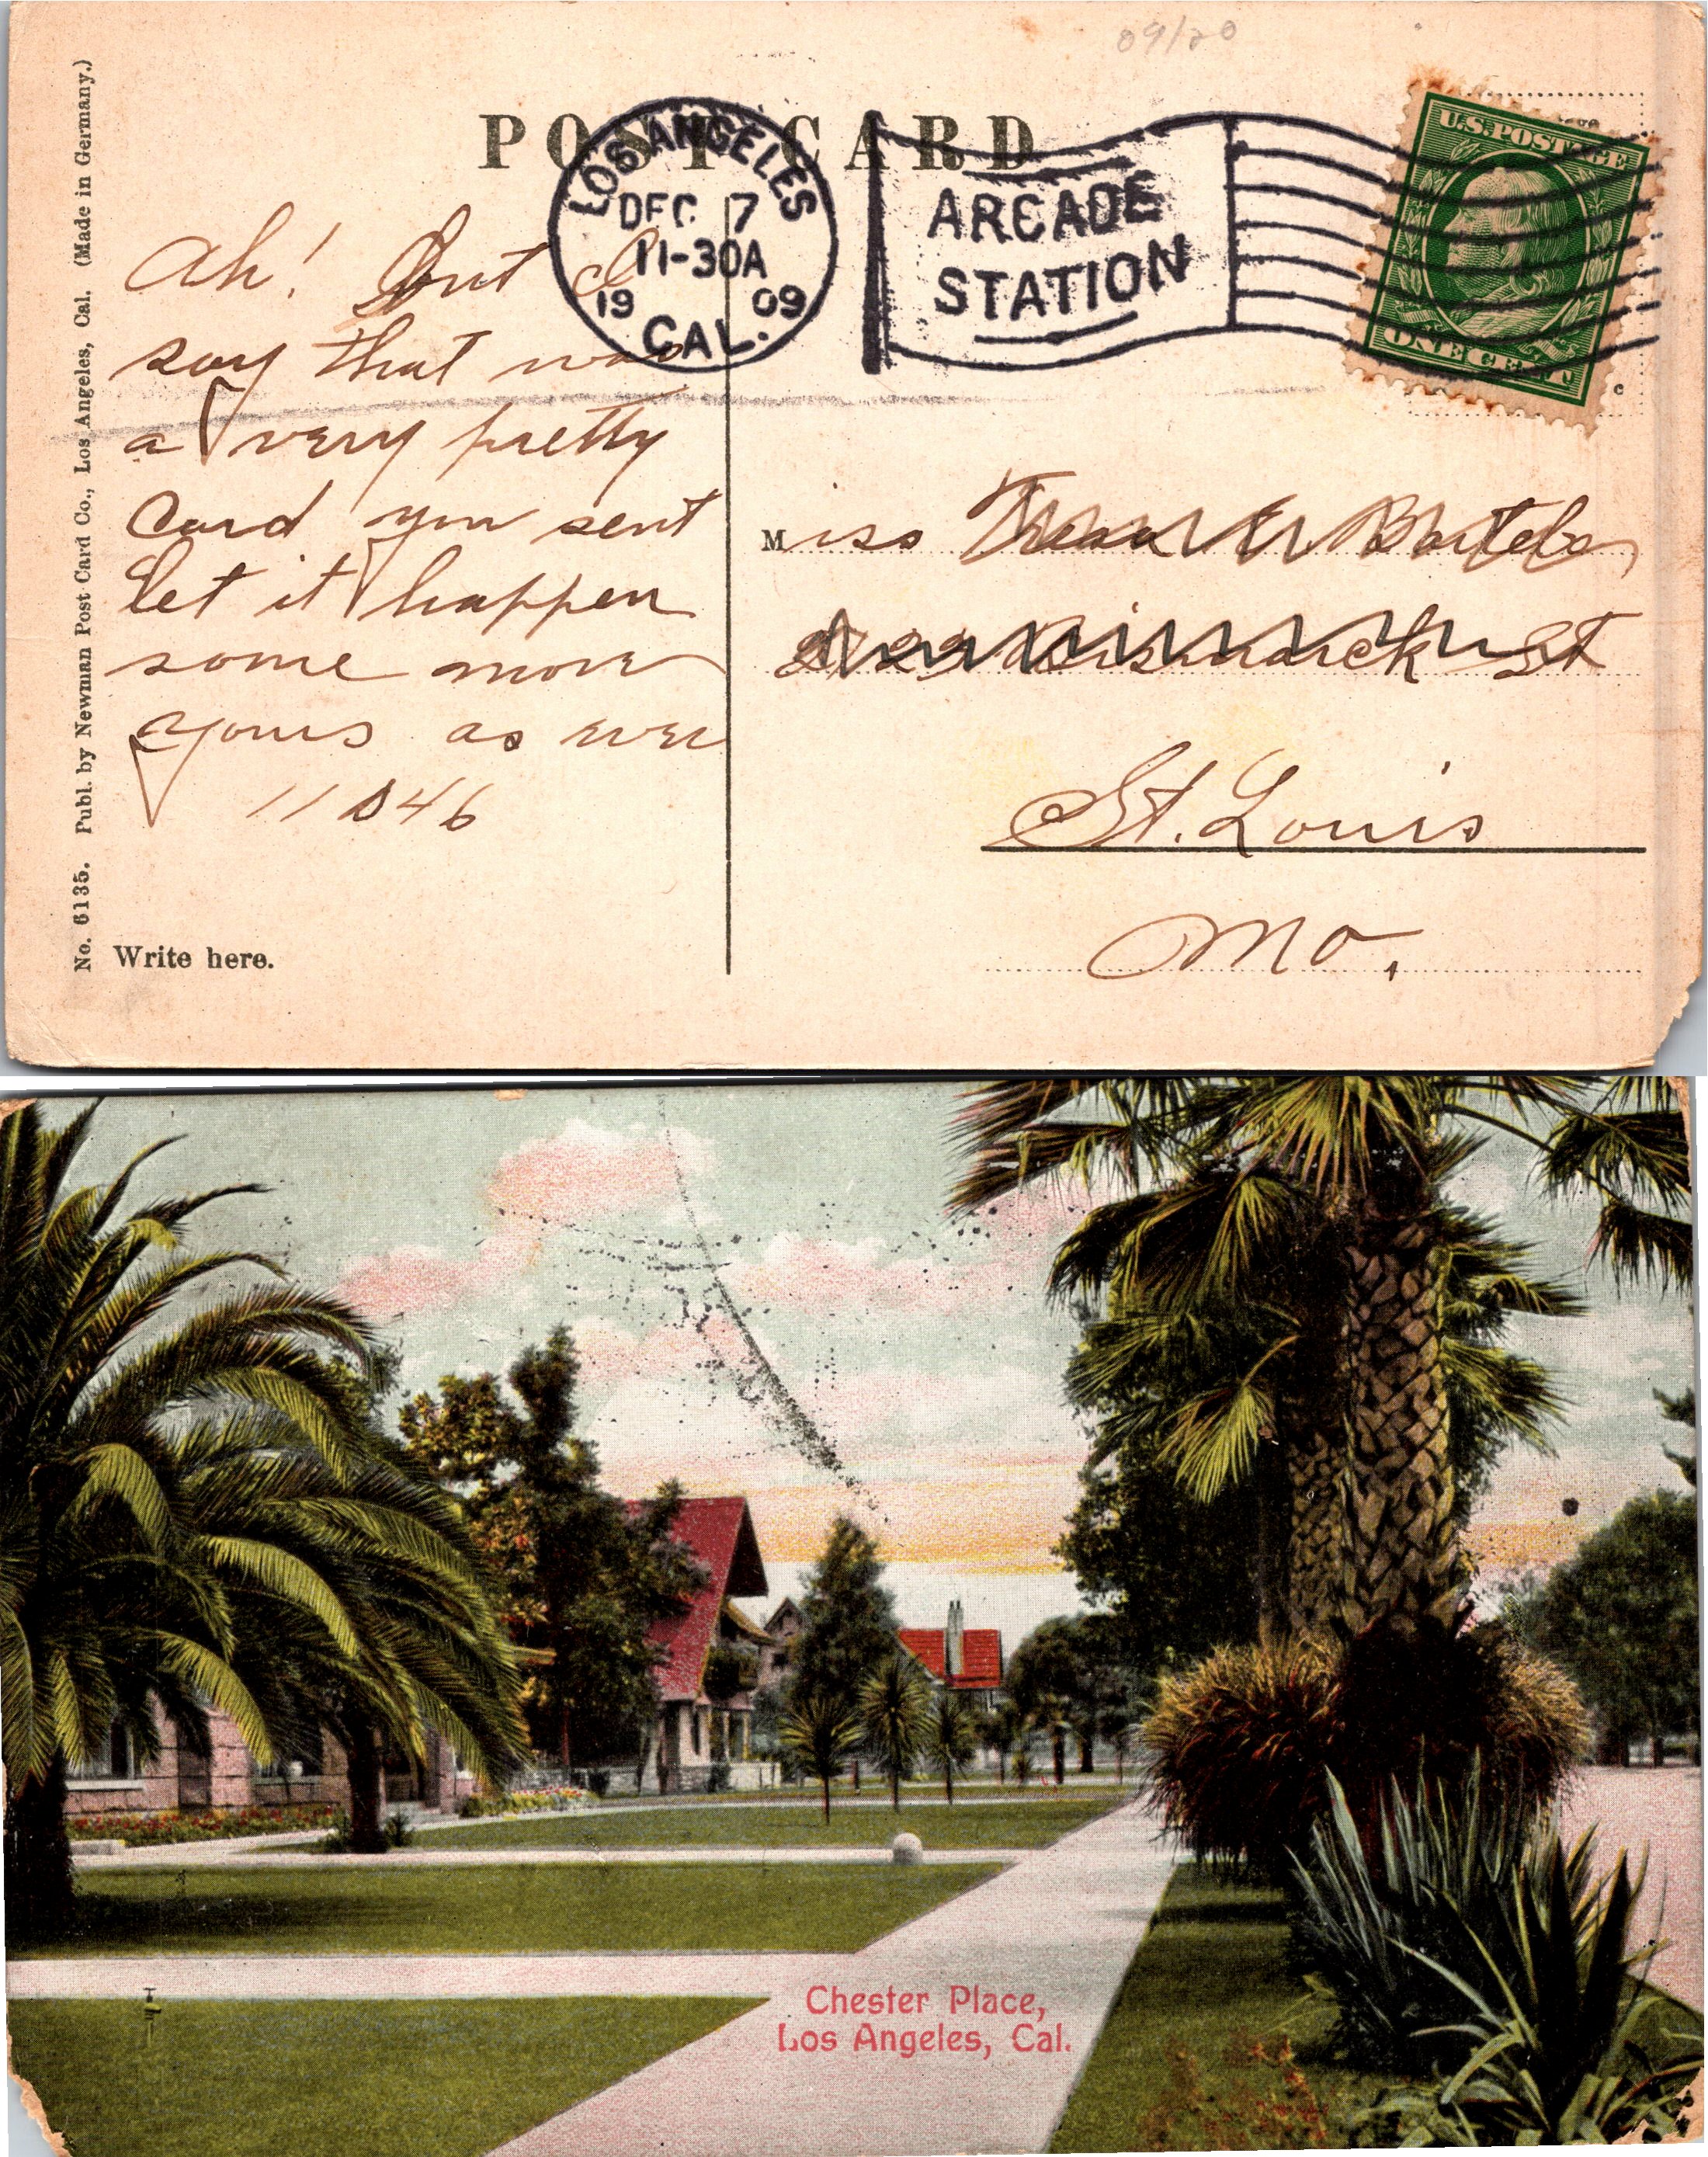 09/20
POST CARD
LOS ANGELES
DEC 7
11-30A
19 09
CAL.
ARCADE
STATION
U.S. POSTAGE
ONE CENT
No. 6135. Publ. by Newman Post Card Co., Los Angeles, Cal. (Made in Germany.)
Ah! But I
say that was
a very pretty
Card you sent
Let it happen
some more
yours as ever
11046
Write here.
Miss Bartels
Bismarck St
St. Louis
Mo.
Chester Place,
Los Angeles, Cal.